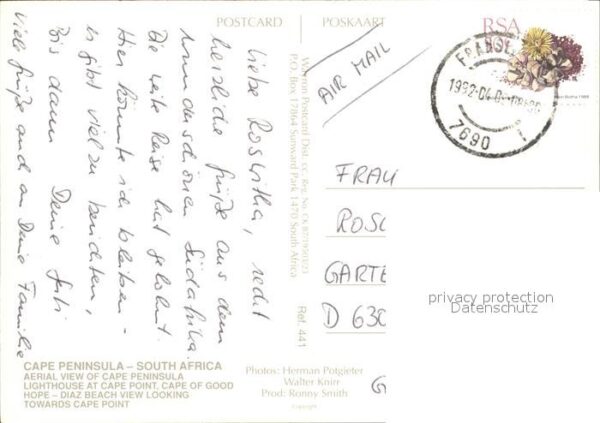 POSTCARD
POSKAART
Liebe Roswitha, recht
herzliche Grüße aus dem
wunderschönen Südafrika.
Die weite Reise hat gelohnt.
Hier könnte ich bleiben -
es gibt viel zu berichten,
Bis dann Deine
Viele Grüße auch an Deine Familie
CAPE PENINSULA – SOUTH AFRICA
AERIAL VIEW OF CAPE PENINSULA
LIGHTHOUSE AT CAPE POINT, CAPE OF GOOD
HOPE – DIAZ BEACH VIEW LOOKING
TOWARDS CAPE POINT
P.O. Box 17864 Sunward Park 1470 South Africa
Ref. 441
Photos: Herman Potgieter
Walter Knirr
Prod: Ronny Smith
Copyright
AIR MAIL
RSA
1992-04-0
7690
FRAU
ROS
GARTE
D 630
G
privacy protection
Datenschutz